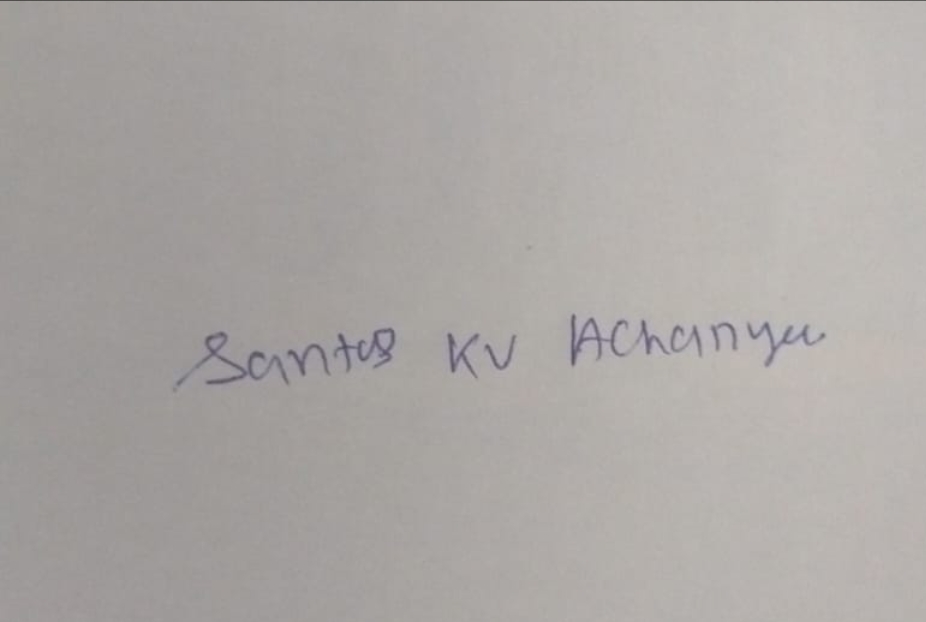 Santos KV Acharya